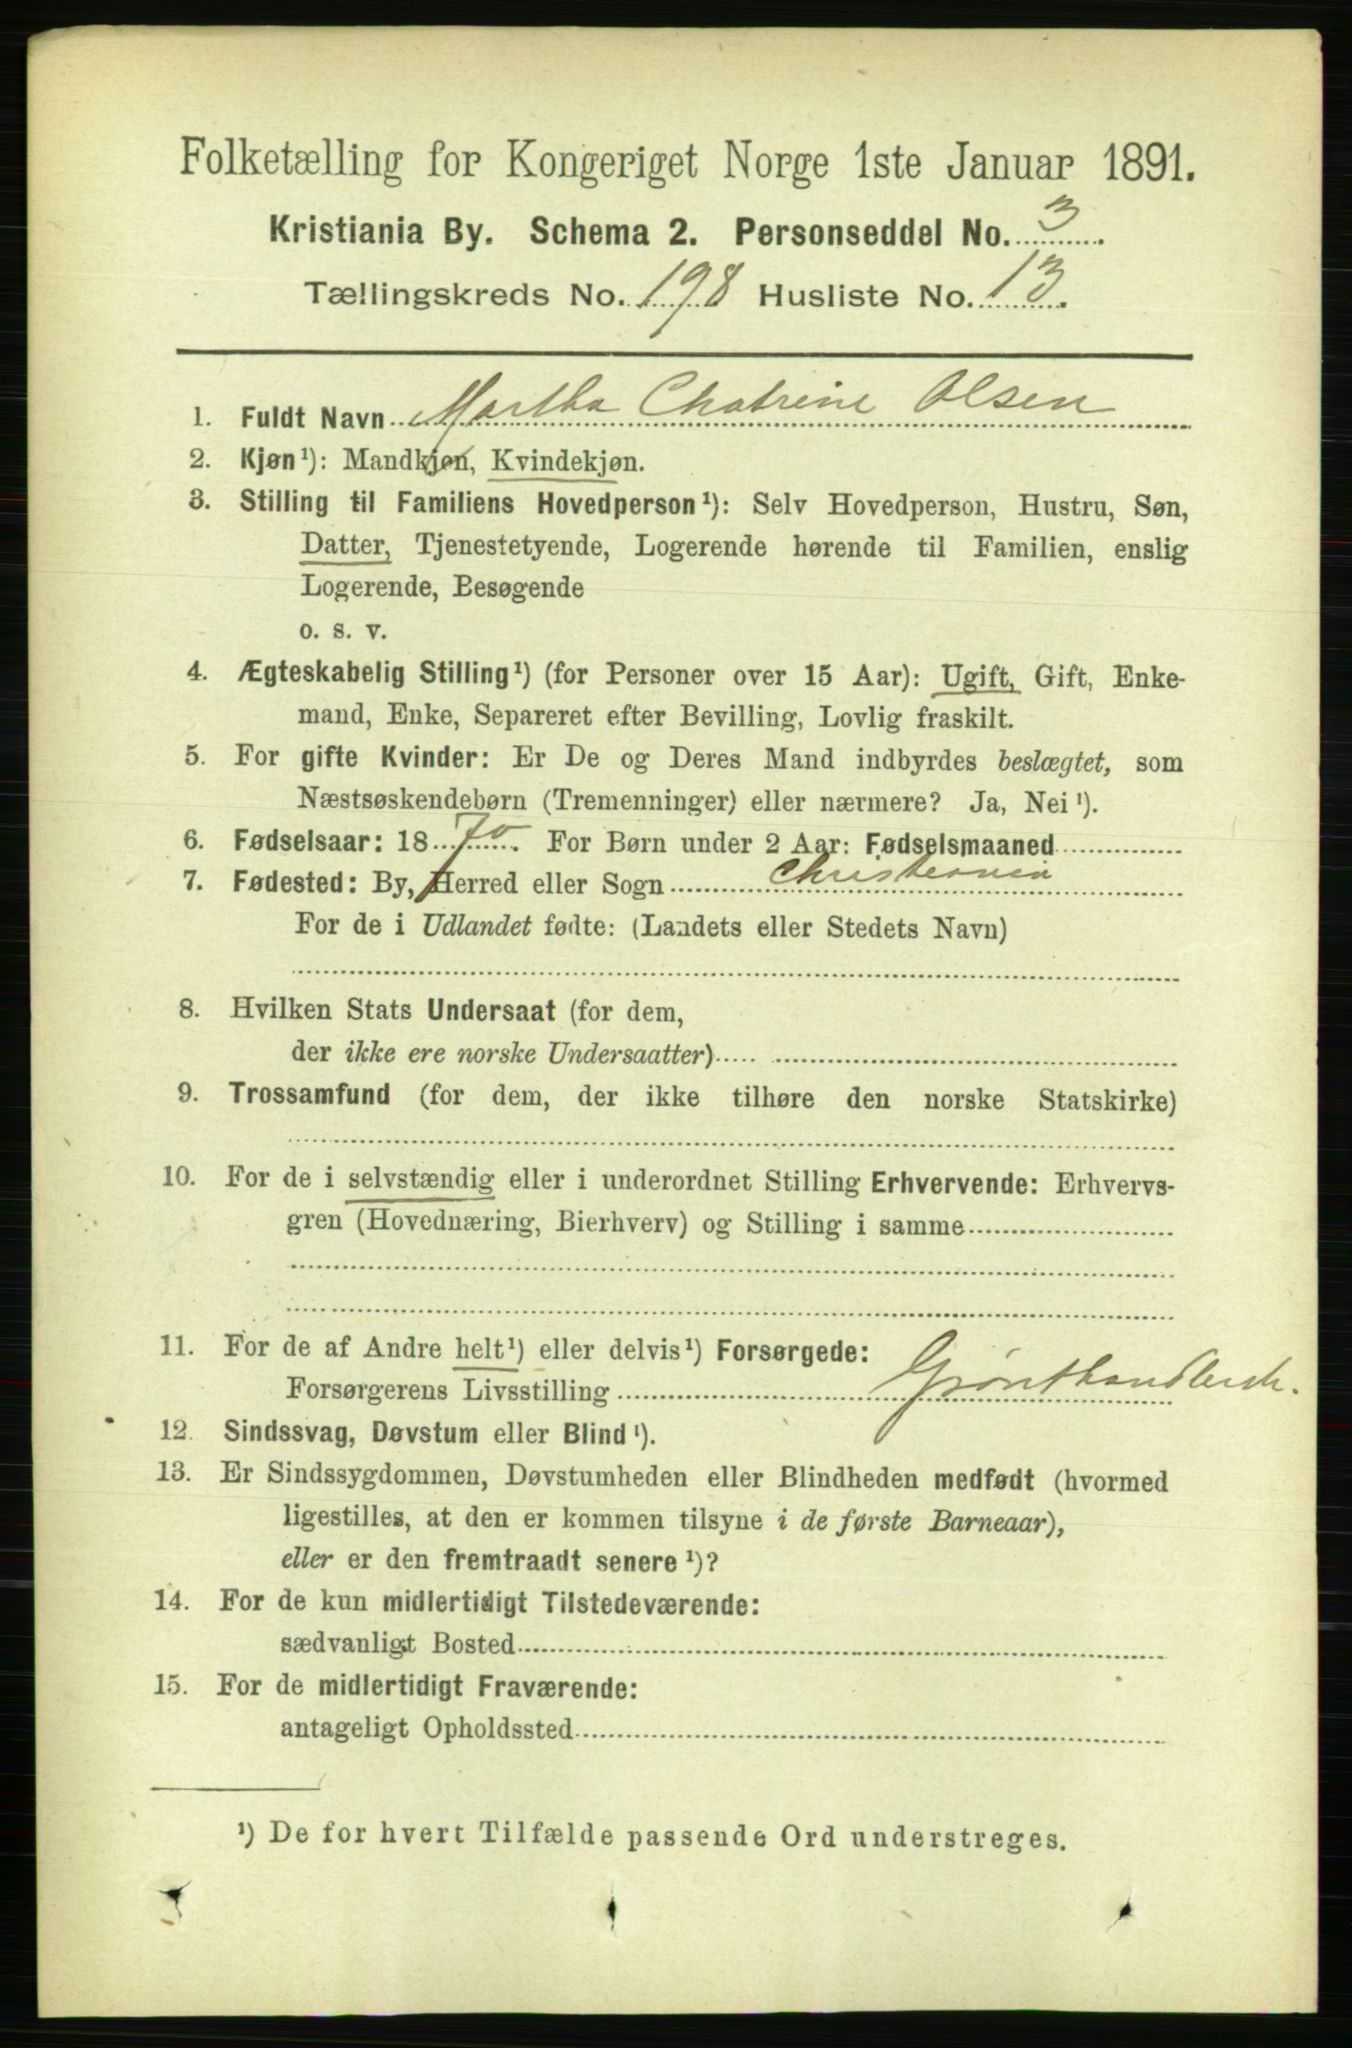 Folketælling for Kongeriget Norge 1ste Januar 1891.
Kristiania By. Schema 2. Personseddel No. 3.
Tællingskreds No. 198 Husliste No. 13.
1. Fuldt Navn Martha Chatrine Olsen
2. Kjøn¹): Mandkjøn, Kvindekjøn.
3. Stilling til Familiens Hovedperson¹): Selv Hovedperson, Hustru, Søn,
Datter, Tjenestetyende, Logerende hørende til Familien, enslig
Logerende, Besøgende
o. s. v.
4. Ægteskabelig Stilling¹) (for Personer over 15 Aar): Ugift, Gift, Enke-
mand, Enke, Separeret efter Bevilling, Lovlig fraskilt.
5. For gifte Kvinder: Er De og Deres Mand indbyrdes beslægtet, som
Næstsøskendebørn (Tremenninger) eller nærmere? Ja, Nei¹).
6. Fødselsaar: 1870. For Børn under 2 Aar: Fødselsmaaned
7. Fødested: By, Herred eller Sogn Christiania
For de i Udlandet fødte: (Landets eller Stedets Navn)
8. Hvilken Stats Undersaat (for dem,
der ikke ere norske Undersaatter)
9. Trossamfund (for dem, der ikke tilhøre den norske Statskirke)
10. For de i selvstændig eller i underordnet Stilling Erhvervende: Erhvervs-
gren (Hovednæring, Bierhverv) og Stilling i samme
11. For de af Andre helt¹) eller delvis¹) Forsørgede:
Forsørgerens Livsstilling Grønthandlersk.
12. Sindssvag, Døvstum eller Blind¹).
13. Er Sindssygdommen, Døvstumheden eller Blindheden medfødt (hvormed
ligestilles, at den er kommen tilsyne i de første Barneaar),
eller er den fremtraadt senere¹)?
14. For de kun midlertidigt Tilstedeværende:
sædvanligt Bosted
15. For de midlertidigt Fraværende:
antageligt Opholdssted
¹) De for hvert Tilfælde passende Ord understreges.